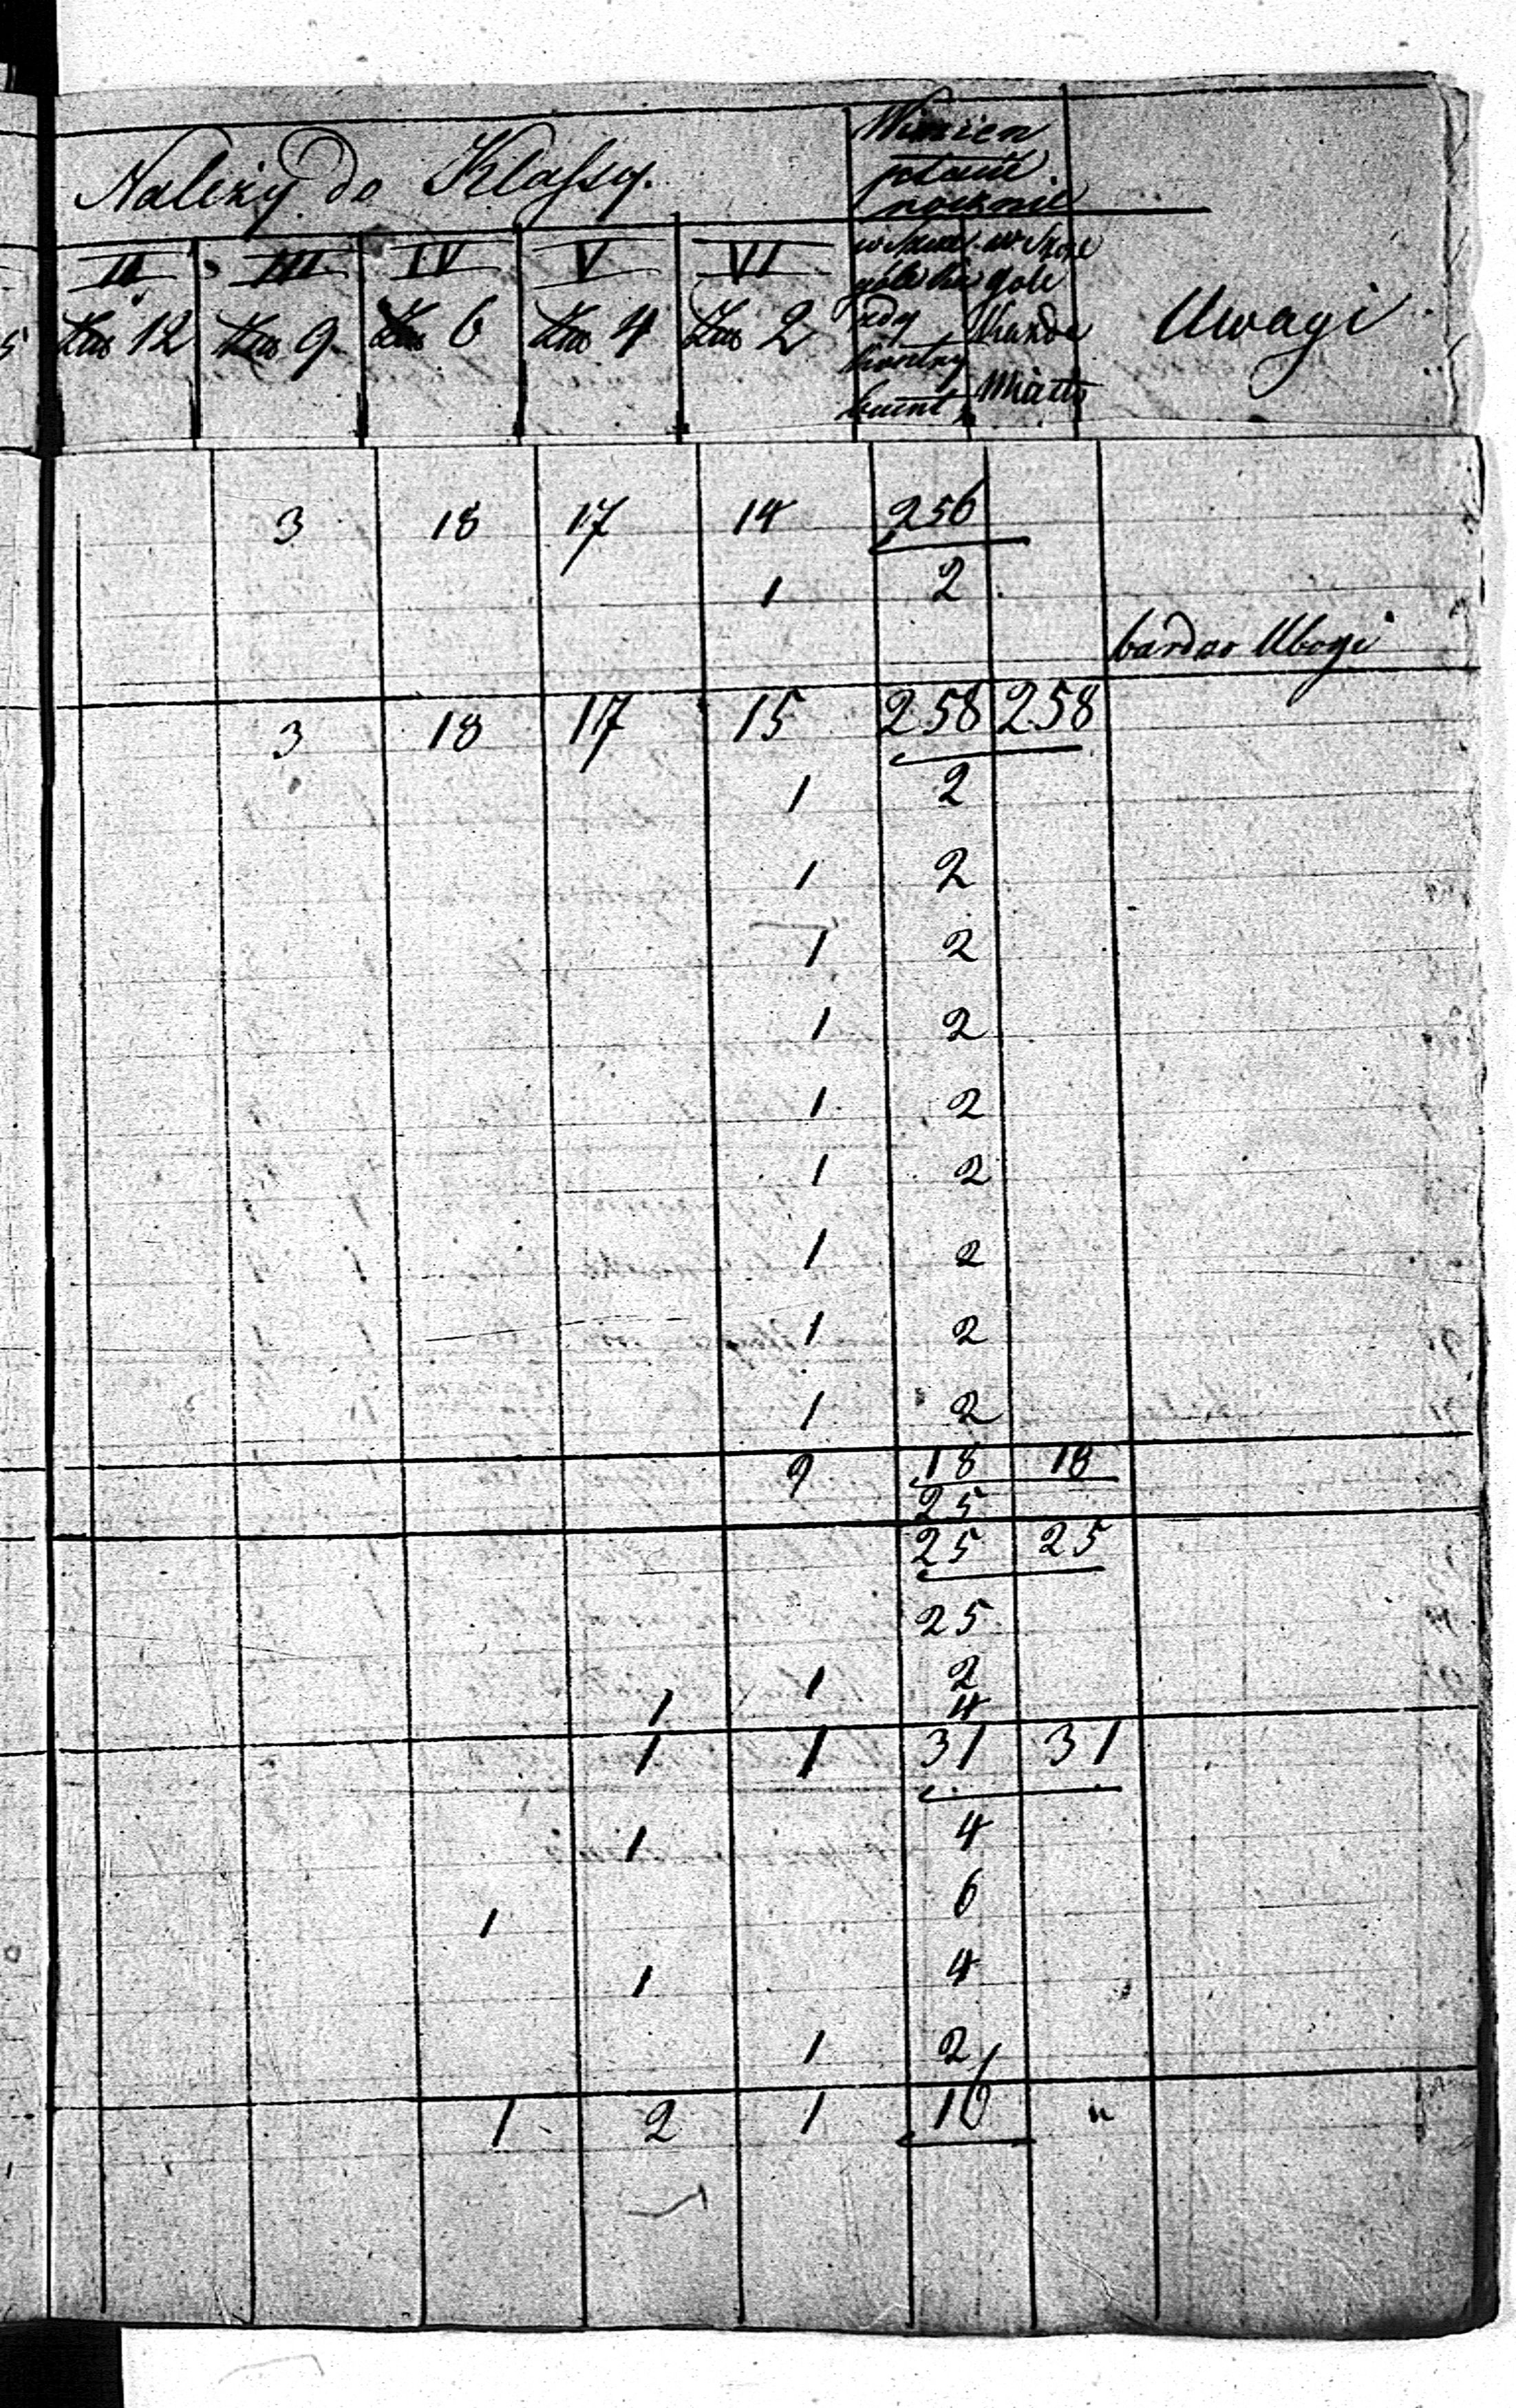 Należy do Klassy.
Winien
płacić
rocznie
II III IV V VI
w szcze- w szcze
góle gole
każde
12 9 6 4 2
Uwagi
Miasto
3 18 17 14 256
1 2
bardzo Ubogi
3 18 17 15 258 258
1 2
1 2
1 2
1 2
1 2
1 2
1 2
1 2
1 2
9 18 18
25
25 25
25
1 2
1 4
1 1 31 31
1 4
1 6
1 4
1 2
1 2 1 16 "